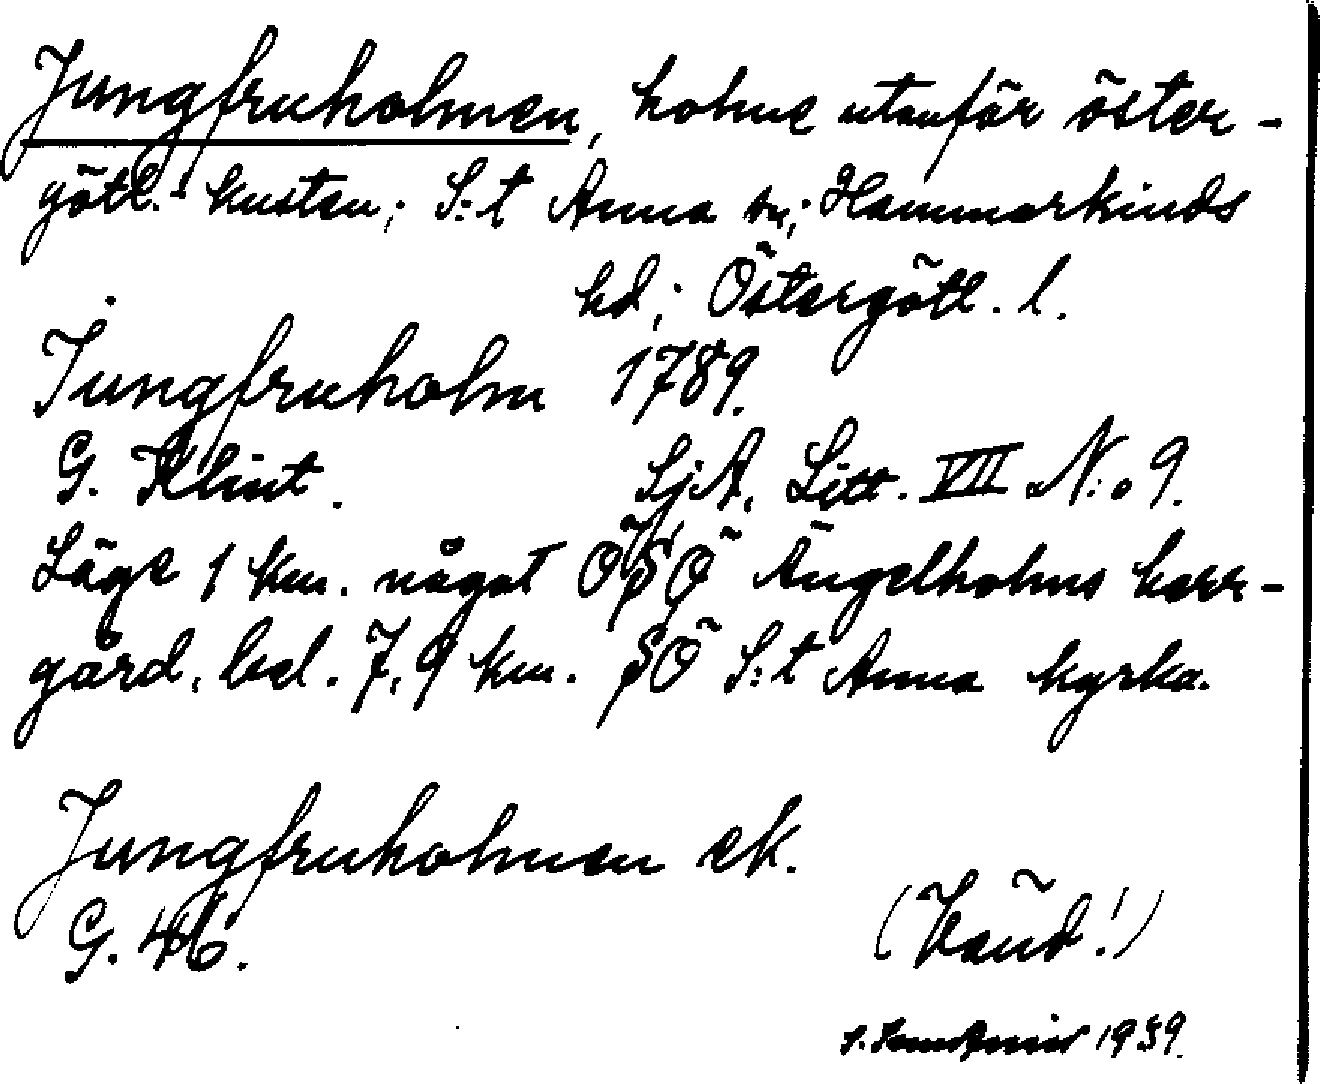 Jungfruholmen, holme utanför öster-
götl.-kusten; S:t Anna sn; Hammarkinds
hd; Östergötl. l.
Jungfruholm 1789.
G. Klint. SjA, Litt. VII N:o 9.
Läge 1 km. något ÖSÖ Ängelholms herr-
gård, bel. 7,9 km. SÖ S:t Anna kyrka.
Jungfruholmen ek.
G. 46.
(Vänd!)
1939.